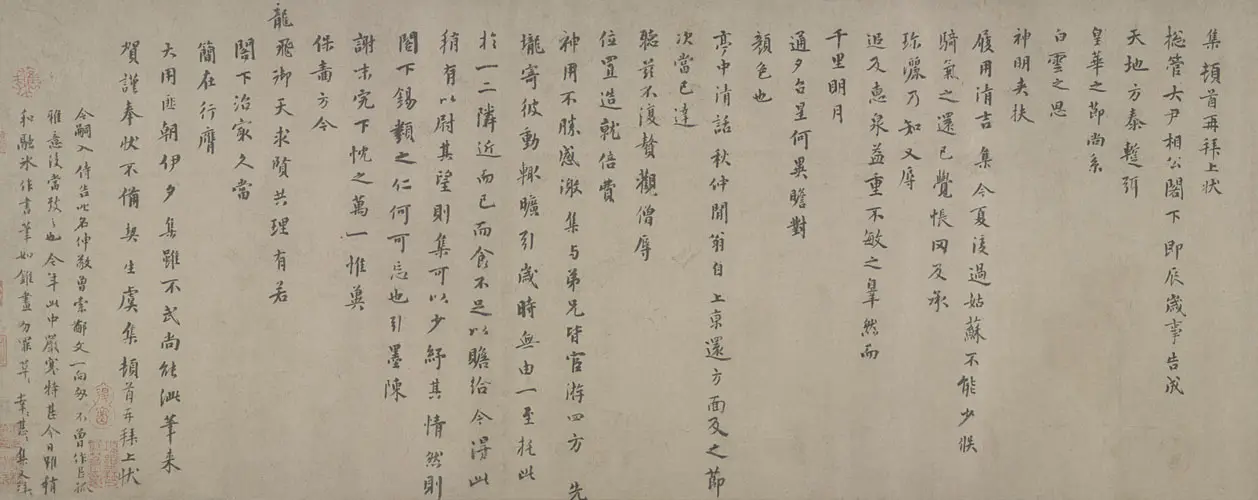 集頓首再拜上狀
摠管大尹相公閤下即辰歲事告成
天地方泰蹔弭
皇華之節尚系
白雲之思
神明夾扶
履用清吉集今夏後過姑蘇不能少俟
騎氣之還已覺悵罔及承
珎灑乃知又辱
追及惠泉益重不敏之辠然而
千里明月
通夕台星何異瞻對
顏色也
亭中清話秋仲閒翁自上京還方面及之節
次當已達
聽茲不復贅觀僧辱
位置造就倍費
神用不勝感激集与弟兄皆官游四方 先
壠寄彼動輒曠引歲時無由一至托此
於一二隣近而已而食不足以贍給今得此
稍有以尉其望則集可以少紓其情然則
閤下錫類之仁何可忘也引墨陳
謝未究下忱之萬一惟冀
保嗇方今
龍飛御天求賢共理有若
閤下治最久當
簡在行膺
大用匪朝伊夕集雖不武尚能泚筆來
賀謹奉狀不備契生虞集頓首再拜上狀
令嗣入侍告此名仲敬曾索鄙文一向匆不曾作
雅意後當致之也今年此中嚴寒特甚今日雖稍
和融氷作書筆如錐畫勿罪草幸甚集又拜